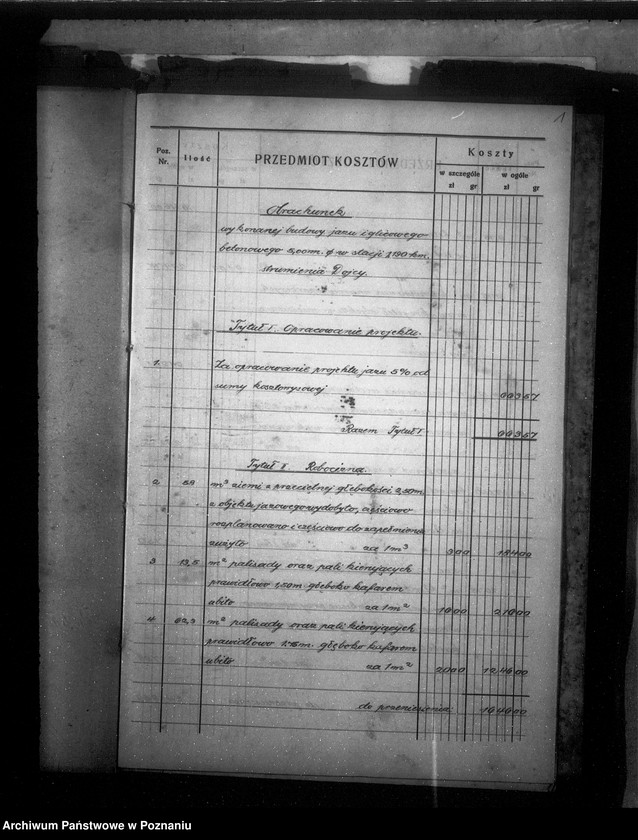 1
Poz. Nr. Ilość PRZEDMIOT KOSZTÓW Koszty
w szczególe w ogóle
zł gr zł gr
Orachunek
wykonanej budowy jazu iglicowego
betonowego 5,00m. w stacji km.
strumienia Dojcy.
Tytuł I. Opracowanie projektu.
1. Za opracowanie projektu jazu 5% od
sumy kosztorysowej
Razem Tytuł I
Tytuł II. Robocizna.
2 m³ ziemi z przeciętnej głębokości 2,50m
z objektu jazowego wydobyto, częściowo
rozplanowano i częściowo do zapełnienia
zużyto za 1m³ 300
3 13,5 m² palisady oraz pali kierujących
prawidłowo 1,50m głęboko kafarem
ubito za 1m² 1600
4 62,3 m² palisady oraz pali kierujących
prawidłowo głęboko kafarem
ubito za 1m² 2000 124600
do przeniesienia:
Archiwum Państwowe w Poznaniu